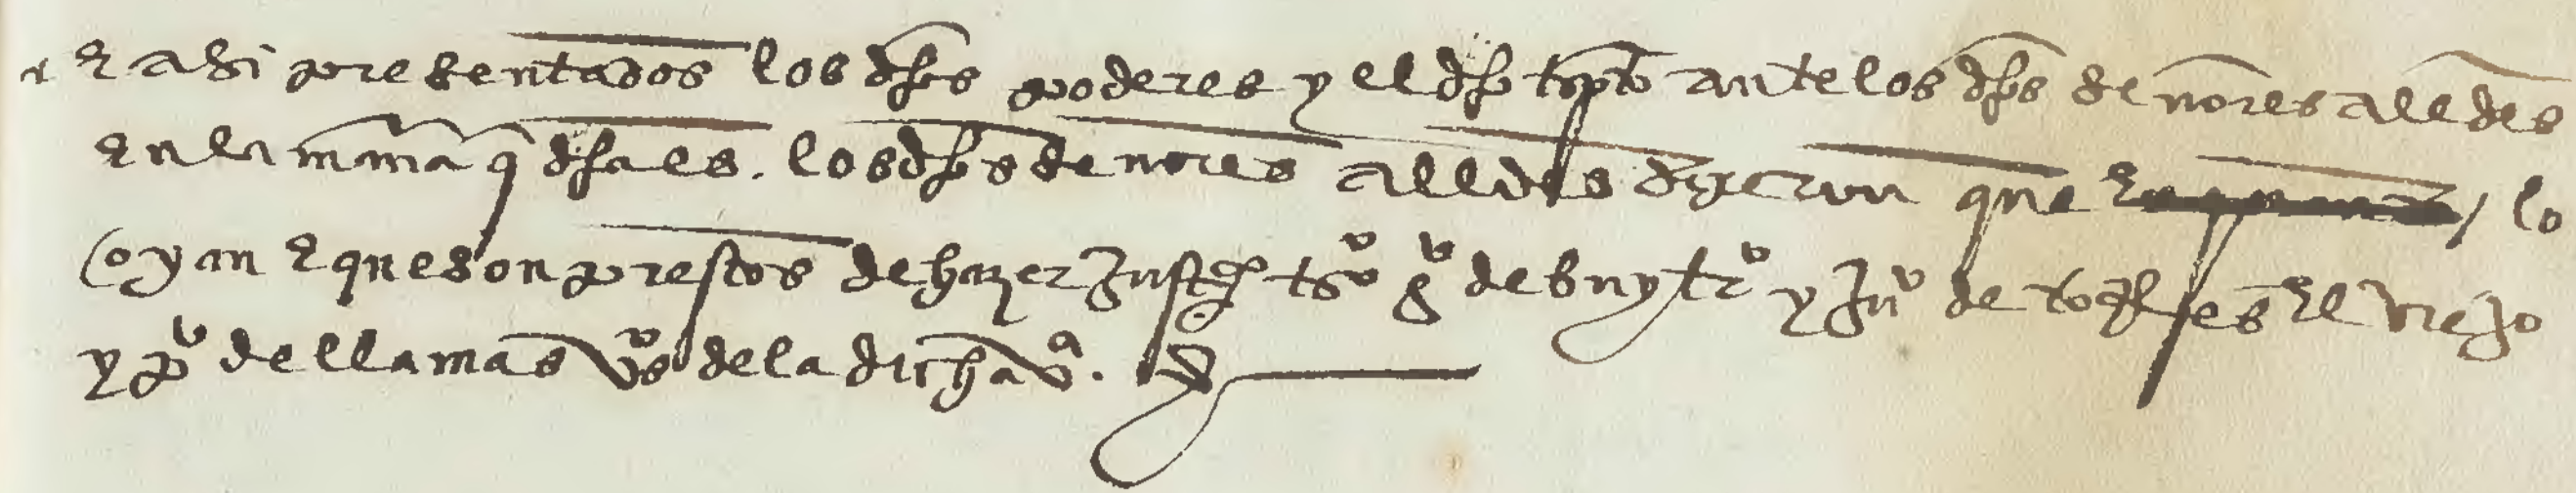 e asi presentados los dhos poderes y el dho tpo ante los dhos senores alldes
en la mana q dha es. los dhos senores alldes dixeron que lo
oyan e que son prestos de hazer justa tso go de buytro y juo de el viejo
y po de llamas vos de la dicha va.